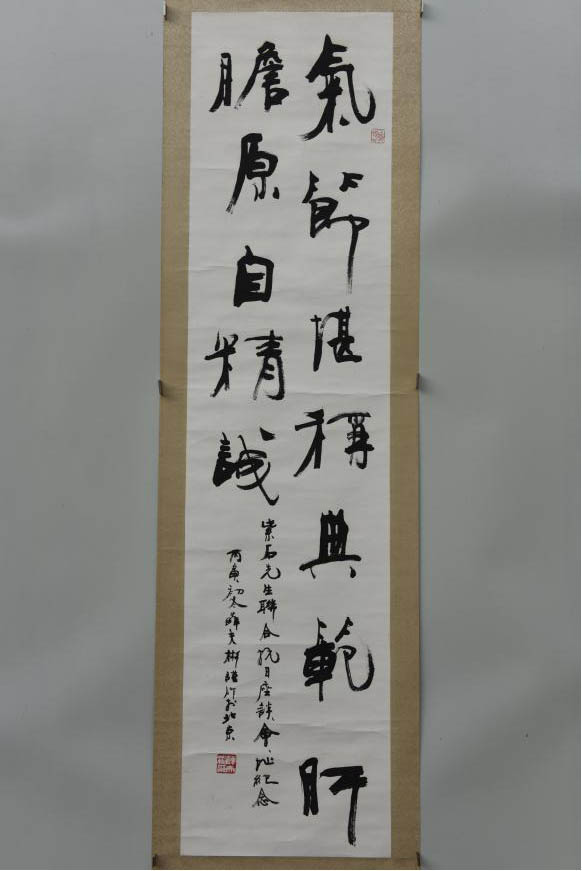 氣節堪稱典範肝
膽原自精誠
紫石先生聯合抗日座談會址紀念
丙寅初冬文彬謹作於北京